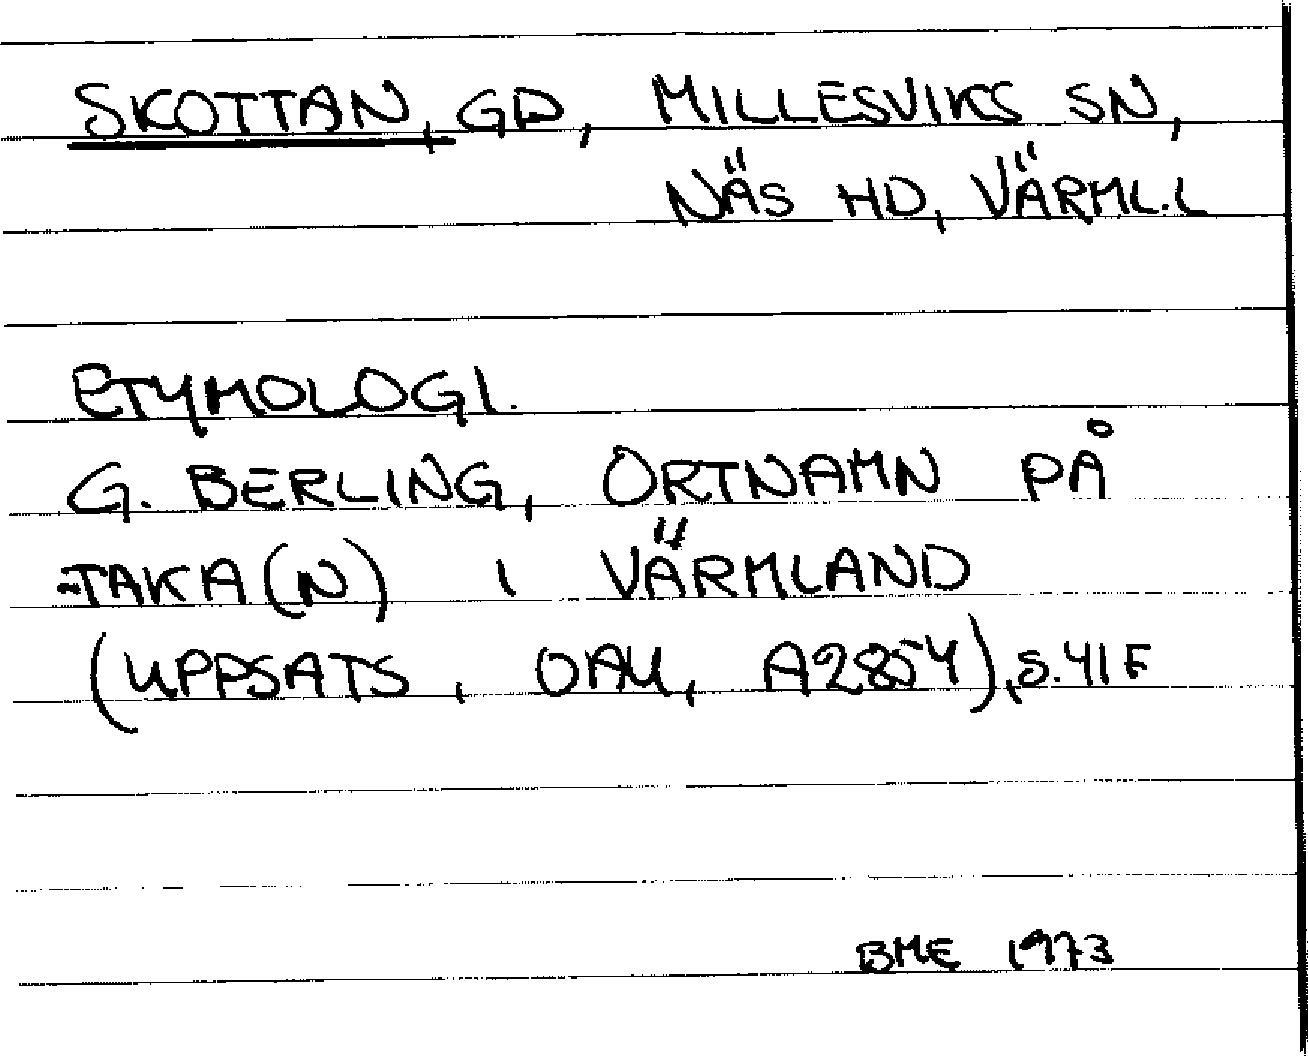 SKOTTAN, GD, MILLESVIKS SN,
NÄS HD, VÄRML.L
ETYMOLOGI.
G. BERLING, ORTNAMN PÅ
-TAKA(N) I VÄRMLAND
(UPPSATS, OAU, A2854), S. 41 F
BME 1973